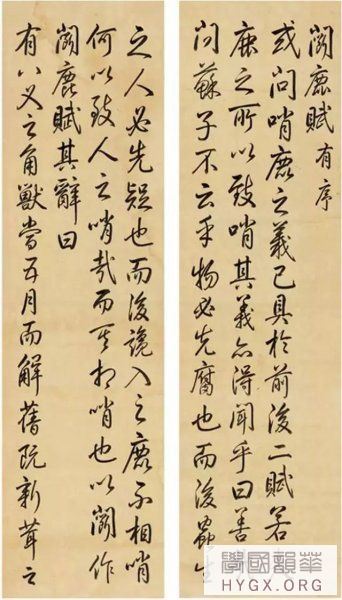 鬭鹿賦 有序
或問哨鹿之義已具於前後二賦若
鹿之所以致哨其義亦得聞乎曰善
問蘇子不云乎物必先腐也而後蟲生
之人必先疑也而後讒入之鹿不相哨
何以致人之哨哉而其相哨也以鬭作
鬭鹿賦其辭曰
有八叉之角獸當五月而解舊阮新茸之
學國韻華
HYGX.ORG